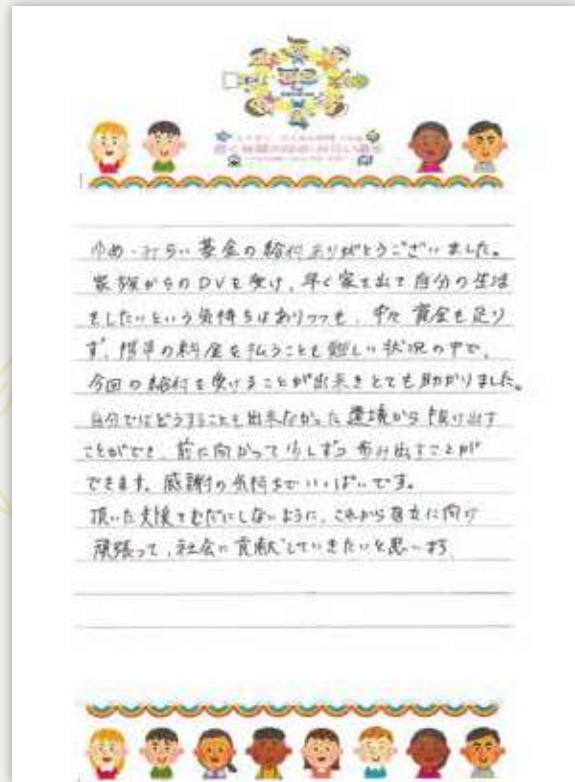 ゆめ・みらい基金の給付ありがとうございました。
家族からのDVを受け、早く家を出て自分の生活
をしたいという気持ちはありつつも、中々 資金も足り
ず、携帯の料金を払うことも難しい状況の中で、
今回の給付を受けることが出来とても助かりました。
自分ではどうすることも出来なかった環境から抜け出す
ことができ、前に向かって少しずつ歩み出すことが
できます。感謝の気持ちでいっぱいです。
頂いた支援をむだにしないように、これから自立に向け
頑張って、社会に貢献していきたいと思います。